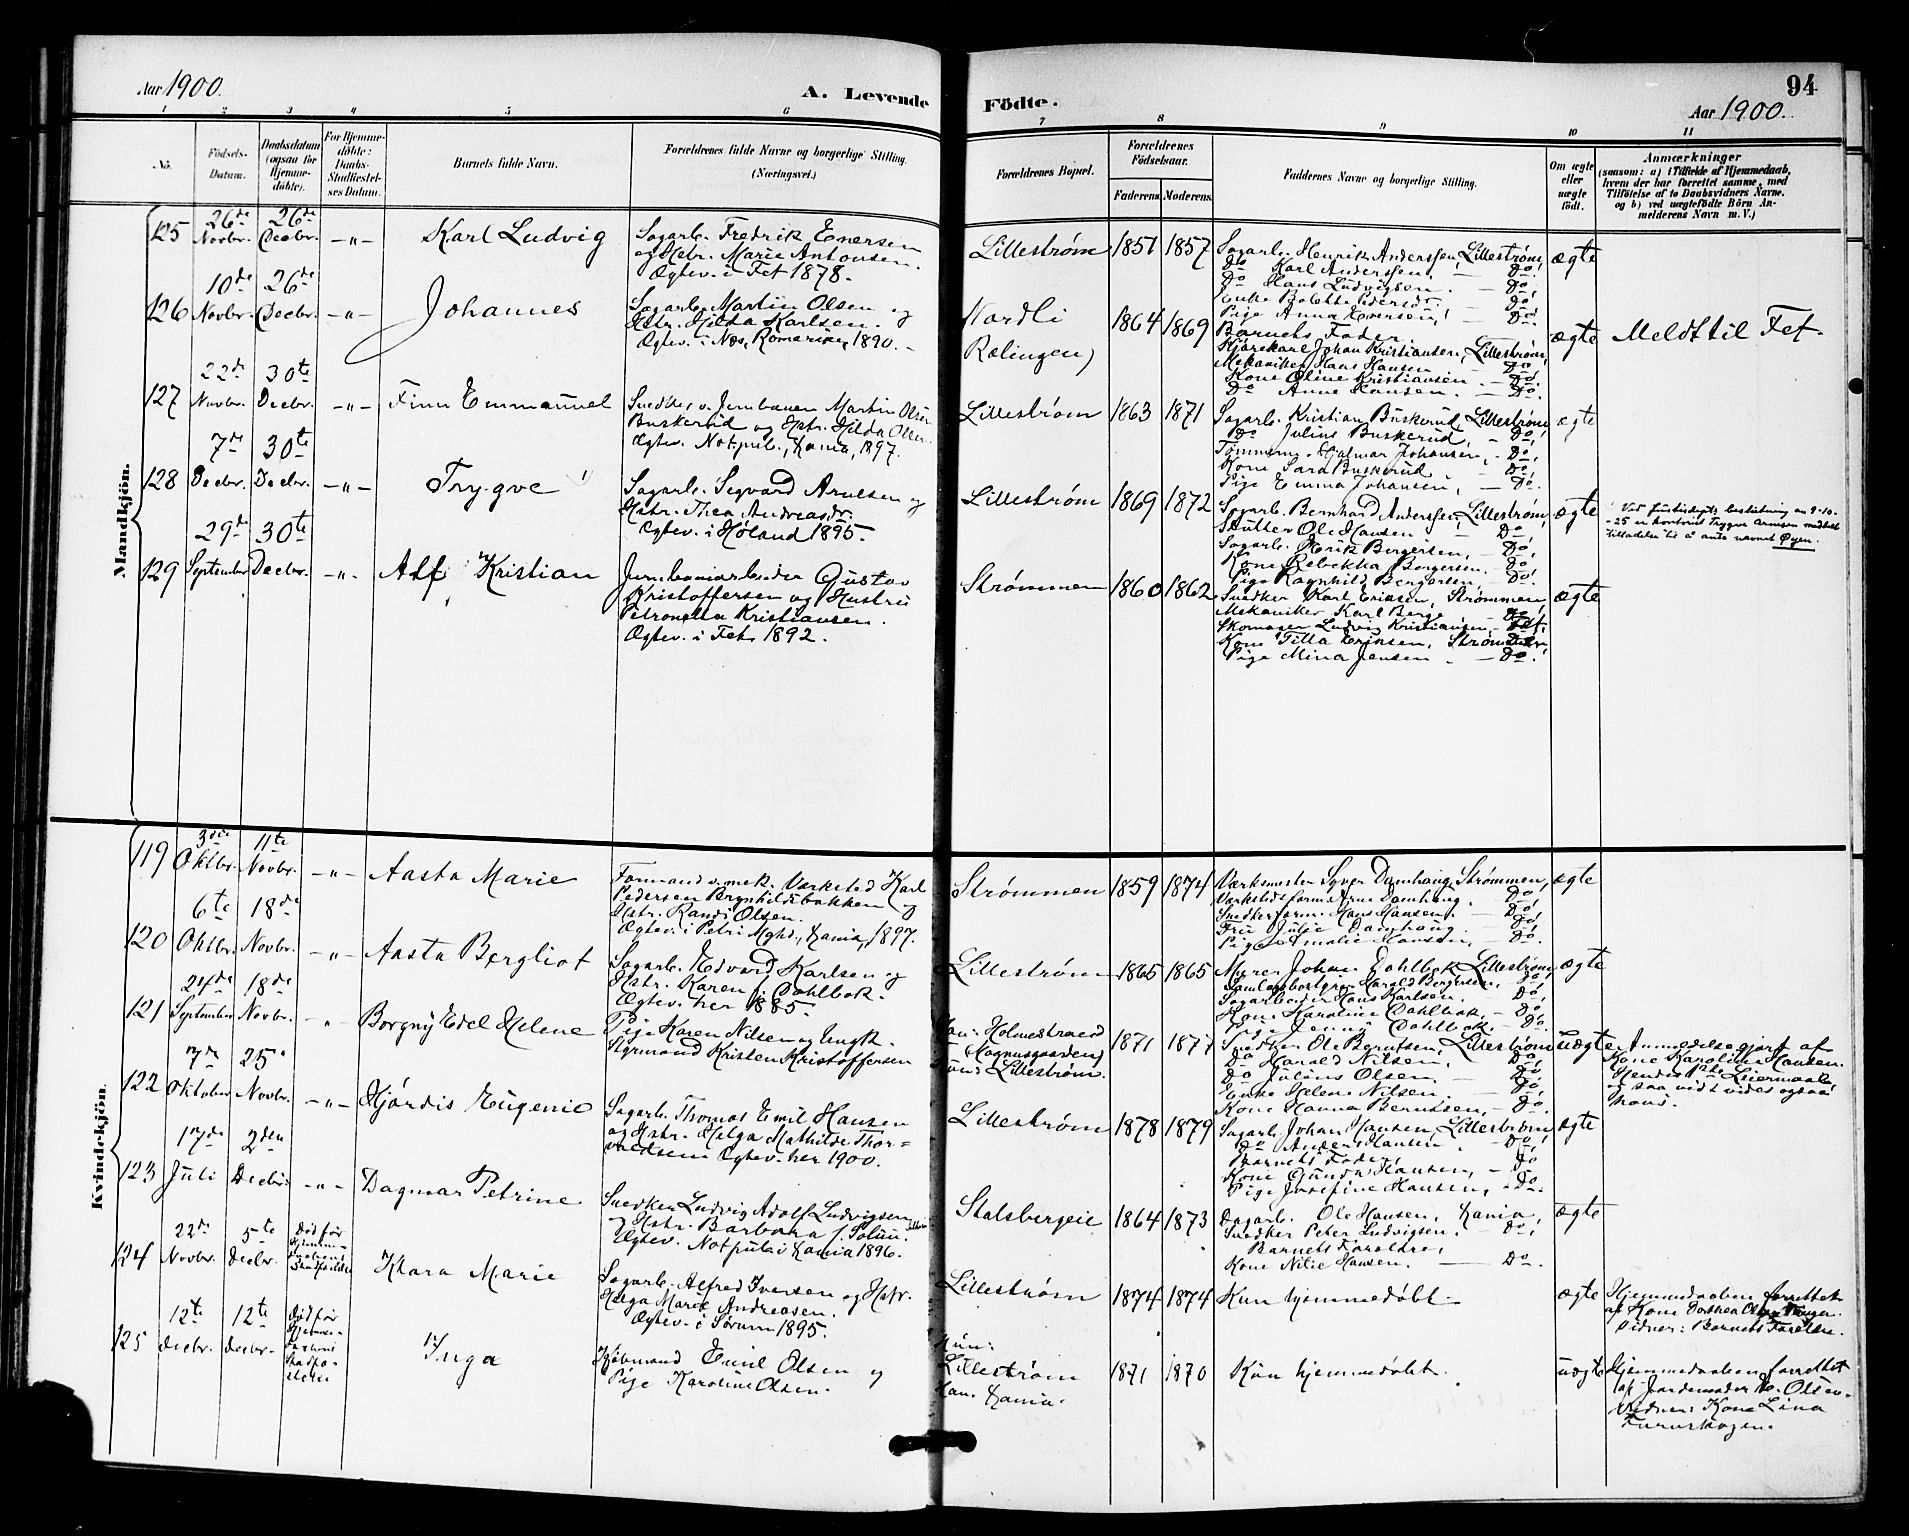 Aar 1900.
A. Levende Födte.
94
Aar 1900.
1 2 3 4 5 6 7 8 9 10 11
No.
Födsels-Datum.
Daabsdatum (ogsaa for Hjemmedöbte).
For Hjemmedöbte: Daabs-Stadfæstelses Datum.
Barnets fulde Navn.
Forældrenes fulde Navne og borgerlige Stilling. (Næringsvei.)
Forældrenes Bopæl.
Forældrenes Födselsaar.
Faderens. Moderens.
Faddernes Navne og borgerlige Stilling.
Om ægte eller uægte födt.
Anmærkninger
(saasom: a) i Tilfælde af Hjemmedaab,
hvem der har forrettet samme, med
Tilföielse af to Daabsvidners Navne.
og b) ved uægtefödte Börn An-
melderens Navn m. V.)
Mandkjön.
125 26de Novbr. 26de Decbr. -"- Karl Ludvig
Sagarb. Fredrik Enersen
og Hstr. Marie Antonsen.
Ægtev. i Fet 1878.
Lillestrøm 1851 1857
Sagarb. Henrik Anderssen, Lillestrøm,
Do Karl Anderssen, — Do,
Do Hans Ludvigsen. — Do,
Enke Bolette Pedersdr. — Do,
Pige Anna Enersen, — Do.
ægte
126 10de Novbr. 26de Decbr. -"- Johannes
Sagarb. Martin Olsen og
Hstr. Hilda Karlsen.
Ægtev. i Næs, Romerike, 1890.
Nordli
Rælingen)
1864 1869
Barnets Fader,
Kjørekarl Johan Kristiansen, Lillestrøm,
Mekaniker Hans Hansen — Do,
Kone Oline Kristiansen — Do,
Do Anne Hansen. — Do.
ægte
Meldt til Fet.
127 22de Novbr. 30te Decbr. -"- Finn Emmanuel
Snedker v. Jernbanen Martin Olsen
Buskerud og Hstr. Hilda Olsen.
Ægtev. Not. pub., Kania, 1897.
Lillestrøm 1863 1871
Sagarb. Kristian Buskerud, Lillestrøm,
Do Julius Buskerud, — Do,
Tømmerm. Hjalmar Johansen, — Do,
Kone Sara Buskerud — Do,
Pige Emma Johansen, — Do.
ægte
128 7de Decbr. 30te Decbr. -"- Trygve
Sagarb. Segvard Arnesen og
Hstr. Thea Andreasdr.
Ægtev. i Høland 1895.
Lillestrøm 1869 1872
Sagarb. Bernhard Anderssen, Lillestrøm,
Skutter Ole Hansen — Do,
Sagarb. Henrik Bergersen, — Do,
Kone Rebekka Bergersen. Do,
Pige Ragnhild Bergersen — Do.
ægte
Ved justisdepts beslutning av 9-10-
-25 er kontorist Trygve Arnesen meddelt
tilladelse til å anta navnet Øyen.
129 29de September 30te Decbr. -"- Alf Kristian
Jernbanearbeider Gustav
Kristoffersen og Hustru
Petronella Kristiansen.
Ægtev. i Fet 1892.
Strømmen 1860 1862
Snedker Karl Eriksen, Strømmen,
Mekaniker Karl Berge — Do,
Skomager Ludvig Kristiansen, Fet,
Kone Tilla Eriksen, Strømmen,
Pige Mina Jensen. — Do.
ægte
Kvindekjön.
119 3die Oktbr. 11te Novbr. -"- Aasta Marie
Formand v. mek. Værksted Karl
Pedersen Brynhildsbakken og
Hstr. Randi Olsen.
Ægtev. i Petri Mghd., Kania, 1897.
Strømmen 1859 1874
Værksmester Syver Damhaug, Strømmen,
Værkstedsform. Arne Damhaug. Do,
Snedkerform. Hans Hansen. — Do,
Fru Julie Damhaug — Do,
Pige Amalie Hansen, — Do.
ægte
120 6te Oktbr. 18de Novbr. -"- Aasta Bergliot
Sagarb. Edvard Karlsen og
Hstr. Karen f. Dahlbak.
Ægtev. her 1885.
Lillestrøm 1865 1865
Murer Johan Dahlbak, Lillestrøm,
Harald Bergersen, Do,
Sagarbeider Hans Karlsen. Do,
Kone Karoline Dahlbak, — Do,
Pige Jenny Dahlbak. — Do.
ægte
121 24de September 18de Novbr. -"- Borgny Edel Helene
Pige Karen Nilsen og Ungk.
Styrmand Kristen Kristoffersen
Han: Holmestrand
(Magnusgaarden)
Hun: Lillestrøm.
1871 1877
Snedker Ole Berntsen, Lillestrøm
Do Harald Nilsen, Do,
Do Julius Olsen — Do,
Enke Helene Nilsen, Do,
Kone Hanna Berntsen, — Do.
uægte
Anmeldelse gjort af
Kone Karoline Hansen.
Hendes 1ste Leiermaal,
og saa vidt vides ogsaa
hans.
122 7de Oktober 25 Novbr. -"- Hjørdis Eugenie
Sagarb. Thomas Emil Hansen
og Hstr. Helga Mathilde Thor-
valdsen. Ægtev. her 1900.
Lillestrøm 1878 1879
Sagarb. Johan Hansen, Lillestrøm
Do Anders Hansen — Do,
Barnets Fader, Do
Kone Gunda Hansen, — Do,
Pige Josefine Hansen, — Do.
ægte
123 17de Juli 2den Decbr. -"- Dagmar Petrine
Snedker Ludvig Adolf Ludvigsen
og Hstr. Barbara f. Solum.
Ægtev. Not. pub. i Kania 1896.
Stalsbergeie 1864 1873
Dagarb. Ole Hansen, Kania,
Snedker Peter Ludvigsen. — Do,
Barnets Forældre,
Kone Nilie Hansen. — Do.
ægte
124 22de Novbr. 5te Decbr. Död før Hjemme-daabens Stadfæstelse
Klara Marie
Sagarb. Alfred Iversen og Hstr.
Helga Marie Andreasen.
Ægtev. i Sørum 1895.
Lillestrøm 1874 1874 Kun hjemmedøbt. ægte
Hjemmedaaben forrettet
af Kone Dorthea Olsen
Vidner: Barnets Forældre.
125 12te Decbr. 12te Decbr. Död før Hjemme-daabens Stadfæ-stelse
Inga
Kjøbmand Emil Olsen og
Pige Karoline Olsen.
Hun:
Lillestrøm
Han: Kania.
1871 1870 Kun hjemmedøbt. uægte
Hjemmedaaben forrettet
af Jordemoder Olsen.
Vidner: Kone Lina
Furuskogen.